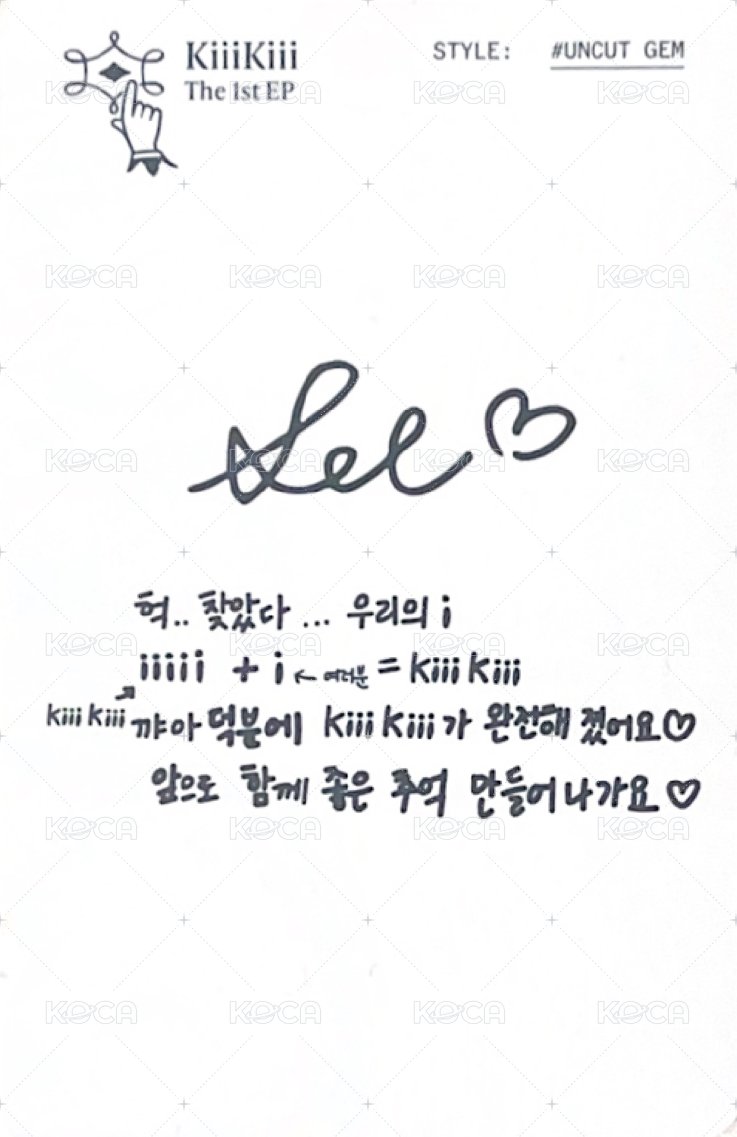 KiiiKiii
The 1st EP
STYLE: #UNCUT GEM
Sul♡
헉.. 찾았다 ... 우리의 i
iiiii + i ← 여러분 = kiii kiii
kiii kiii 꺄아 덕분에 kiii kiii가 완전해 졌어요♡
앞으로 함께 좋은 추억 만들어나가요♡
KOCA